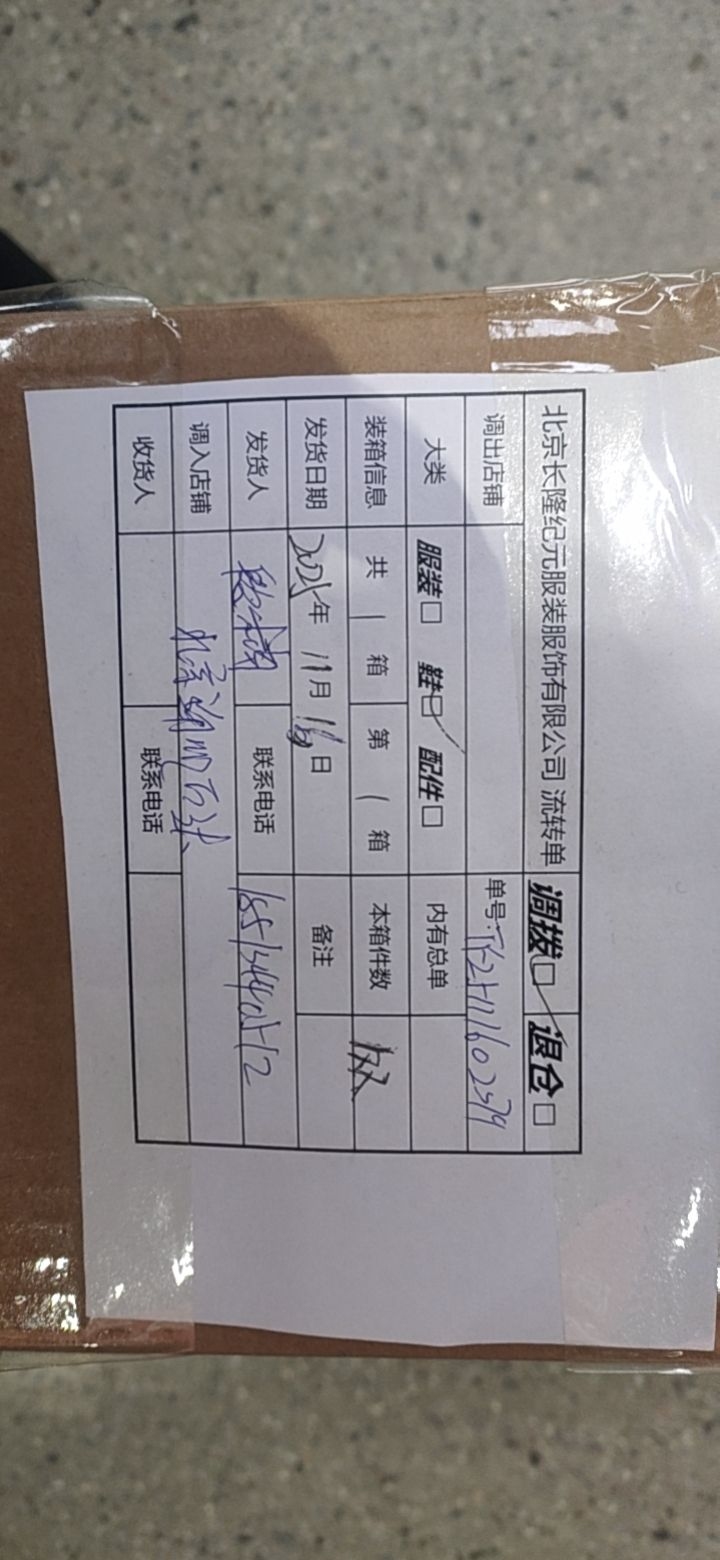 北京长隆纪元服装服饰有限公司 流转单 调拨☑ 退仓□
调出店铺 单号:
大类 服装□ 鞋☑ 配件□ 内有总单
装箱信息 共 1 箱 第 1 箱 本箱件数
发货日期 2025年 11月 16日 备注
发货人 联系电话
调入店铺 北京
收货人 联系电话